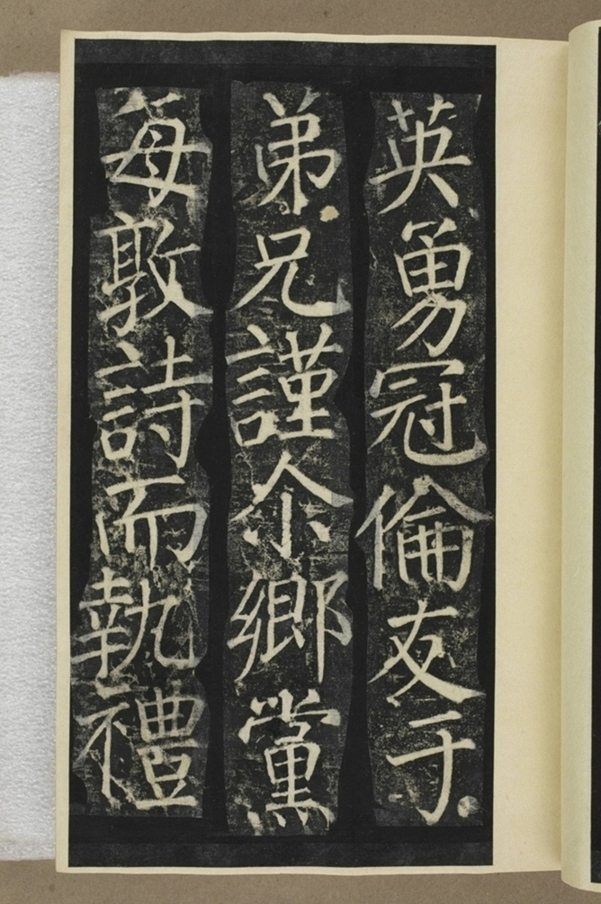 英勇冠倫友于
弟兄謹尒鄉黨
每敦詩而執禮